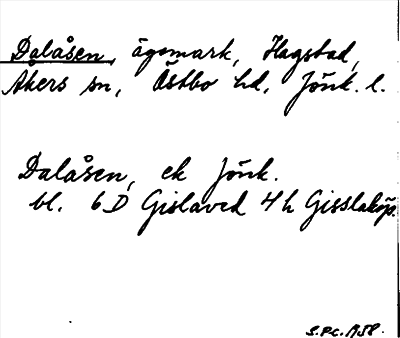 Dalåsen, ägomark, Hagstad,
Åkers sn, Östbo hd, Jönk. l.
Dalåsen, ek Jönk.
bl. 6D Gislaved 4h Gisslaköp.